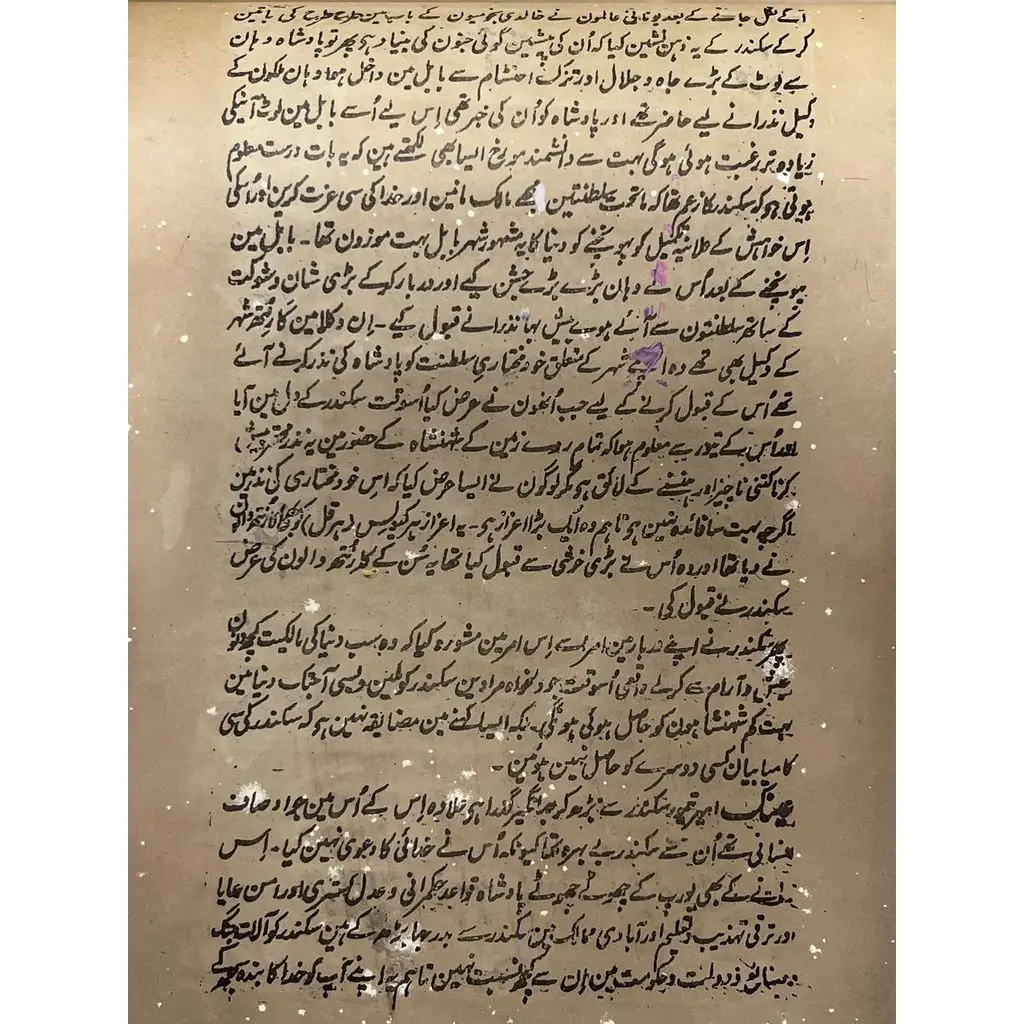 آگے نکل جانے کے بعد یونانی عالمون نے خالدی نجومیون کے باب مین طرح طرح کی باتین
کر کے سکندر کے یہ ذہن نشین کیا کہ اُن کی پیشین گوئی جنون کی بنیاد ہی پھر تو پادشاہ وہان
سے لوٹ کے بڑے جاہ و جلال اور تزک احتشام سے بابل مین داخل ہوا وہان ملکون کے
وکیل نذرانے لیے حاضر تھے اور پادشاہ کو اُن کی خبر تھی اِس لیے اُسے بابل مین لوٹ آنیکی
زیادہ تر رغبت ہوئی ہوگی بہت سے دانشمند مورخ ایسا بھی لکھتے ہین کہ یہ بات درست معلوم
ہوتی ہو کہ سکندر کا زعم تھا کہ ماتحت سلطنتین مجھے مالک مانین اور خدا کی سی عزت کرین اور اُسکی
اِس خواہش کے علانیہ تکمیل کو پہونچنے کو دنیا کا یہ مشہور شہر بابل بہت موزون تھا - بابل مین
پہونچنے کے بعد اُس نے وہان بڑے بڑے جشن کیے اور دربار کرکے بڑی شان و شوکت
کے ساتھ سلطنتون سے آئے ہوے بیش بہا نذرانے قبول کیے - اِن وکلا مین کارنتھ شہر
کے وکیل بھی تھے وہ اپنے شہر کے متعلق خود مختاریِ سلطنت کو پادشاہ کی نذر کرنے آئے
تھے اُس کے قبول کرنے کے لیے جب اُنھون نے عرض کیا اُسوقت سکندر کے دل مین آیا
اور اُس کے تیور سے معلوم ہوا کہ تمام روے زمین کے شہنشاہ کے حضور مین یہ نذر پیش
کرنا کتنی ناچیز اور ہنسنے کے لائق ہو مگر لوگون نے ایسا عرض کیا کہ اِس خود مختاری کی نذر مین
اگرچہ بہت سا فائدہ نہین ہو تاہم وہ ایک بڑا اعزاز ہو - یہ اعزاز ہرکیولیس (ہرقل) کو بھی کارنتھ والون
نے دیا تھا اور وہ اُس نے بڑی خوشی سے قبول کیا تھا یہ سُن کے کارنتھ والون کی عرض
سکندر نے قبول کی -
پھر سکندر نے اپنے دربار مین امرا سے اِس امر مین مشورہ کیا کہ وہ سب دنیا کی مالکیت کچھ دنون
عیش و آرام سے کرلے واقعی اُسوقت جو دلخواہ مرادین سکندر کو ملین ویسی آجتک دنیا مین
بہت کم شہنشاہون کو حاصل ہوئی ہونگی - بلکہ ایسا کہنے مین مضایقہ نہین ہو کہ سکندر کی سی
کامیابیان کسی دوسرے کو حاصل نہین ہوئین -
امیر تیمور سکندر سے بڑھ کر جہانگیر گذرا ہو علاوہ اِس کے اُس مین جو اوصاف
انسانی تھے اُن سے سکندر بے بہرہ تھا کیونکہ اُس نے خدائی کا دعوی نہین کیا - اِس
زمانے کے بھی یورپ کے چھوٹے چھوٹے پادشاہ قواعد حکمرانی و عدل گستری اور امن رعایا
اور ترقی تہذیب و تعلیم اور آبادی ممالک مین سکندر سے بدرجہا بڑھ کے ہین سکندر کو آلات جنگ
و دولت و حکومت مین اِن سے کچھ نسبت نہین تاہم یہ اپنے آپ کو خدا کا بندہ سمجھ کے